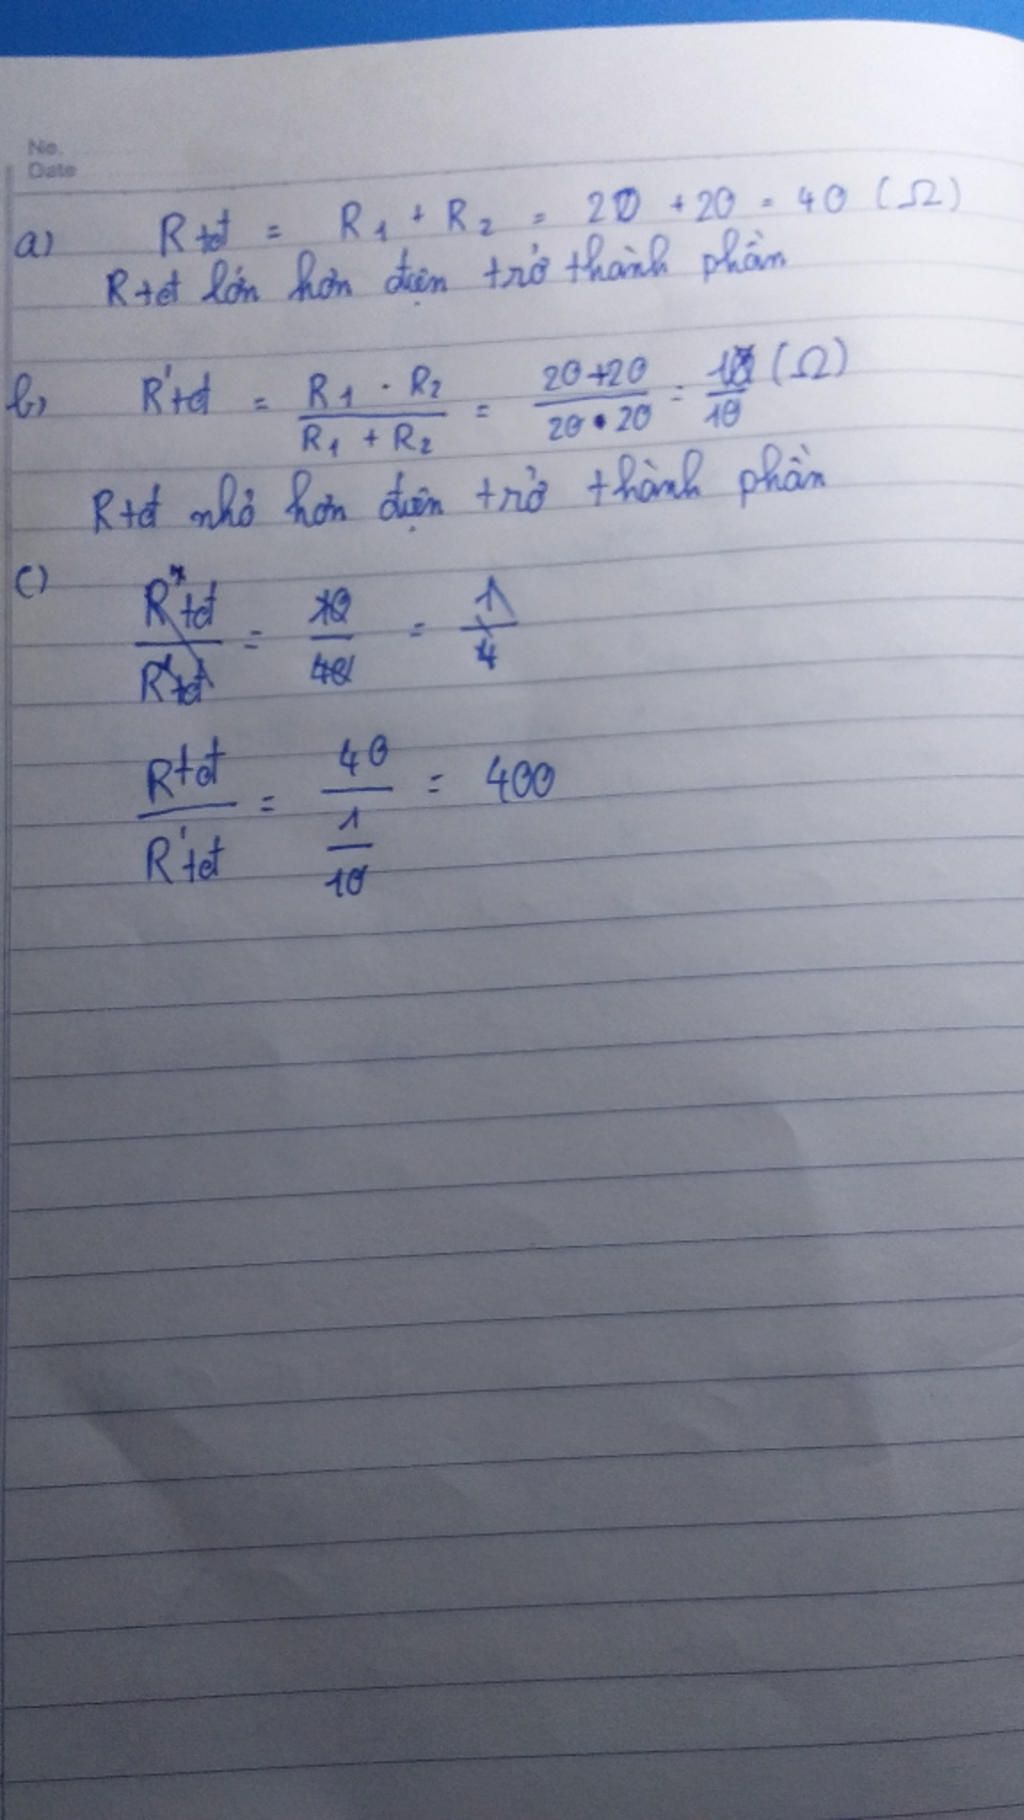 No.
Date
a) Rtđ = R1 + R2 = 20 + 20 = 40 (Ω)
Rtđ lớn hơn điện trở thành phần
b) R'tđ = R1 . R2 / R1 + R2 = 20+20 / 20 . 20 = 1 / 10 (Ω)
Rtđ nhỏ hơn điện trở thành phần
c) R'tđ / Rtđ = 10 / 40 = 1 / 4
Rtđ / R'tđ = 40 / 1 / 10 = 400